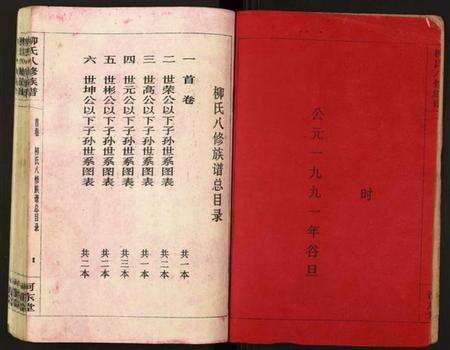 时
公元一九九一年谷旦
柳氏八修族谱总目录
一 首卷 共一本
二 世荣公以下子孙世系图表 共二本
三 世高公以下子孙世系图表 共一本
四 世元公以下子孙世系图表 共三本
五 世彬公以下子孙世系图表 共二本
六 世坤公以下子孙世系图表 共二本
柳氏八修族谱
首卷 柳氏八修族谱总目录
河东堂